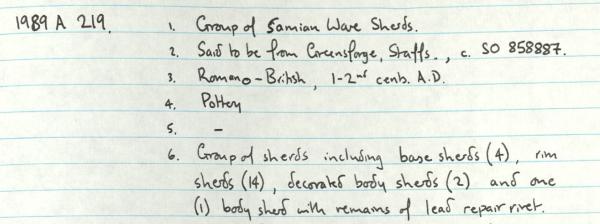 1989 A 219. 1. Group of Samian Ware Sherds.
2. Said to be from Greensforge, Staffs., c. SO 858887.
3. Romano-British, 1-2nd cents. A.D.
4. Pottery
5. -
6. Group of sherds including base sherds (4), rim
sherds (14), decorated body sherds (2) and one
(1) body sherd with remains of lead repair rivet.